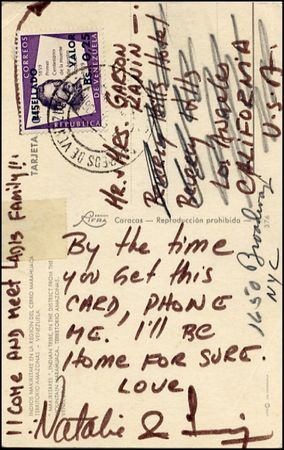 CORREOS
DE VENEZUELA
RESELLADO
VALOR
REPUBLICA
CORREOS DE VENEZUELA
TARJETA
MR. & MRS. GARSON
KANIN —
Beverly Hills Hotel
Beverly Hills
Los Angeles
CALIFORNIA
U.S.A.
1650 Broadway
NYC
Caracas — Reproducción prohibida
376
By the time
you get this
CARD, PHONE
ME. I'LL BE
HOME FOR SURE.
LOVE
Natalie &
!! COME AND MEET LADIS FAMILY!!
INDIOS MAKIRITARE EN LA REGION DEL CERRO MARAHUACA
TERRITORIO AMAZONAS - VENEZUELA
MAKIRITARES" INDIAN TRIBE, IN THE DISTRICT FROM THE
MOUNTAIN MARAHUACA, TERRITORIO AMAZONAS.